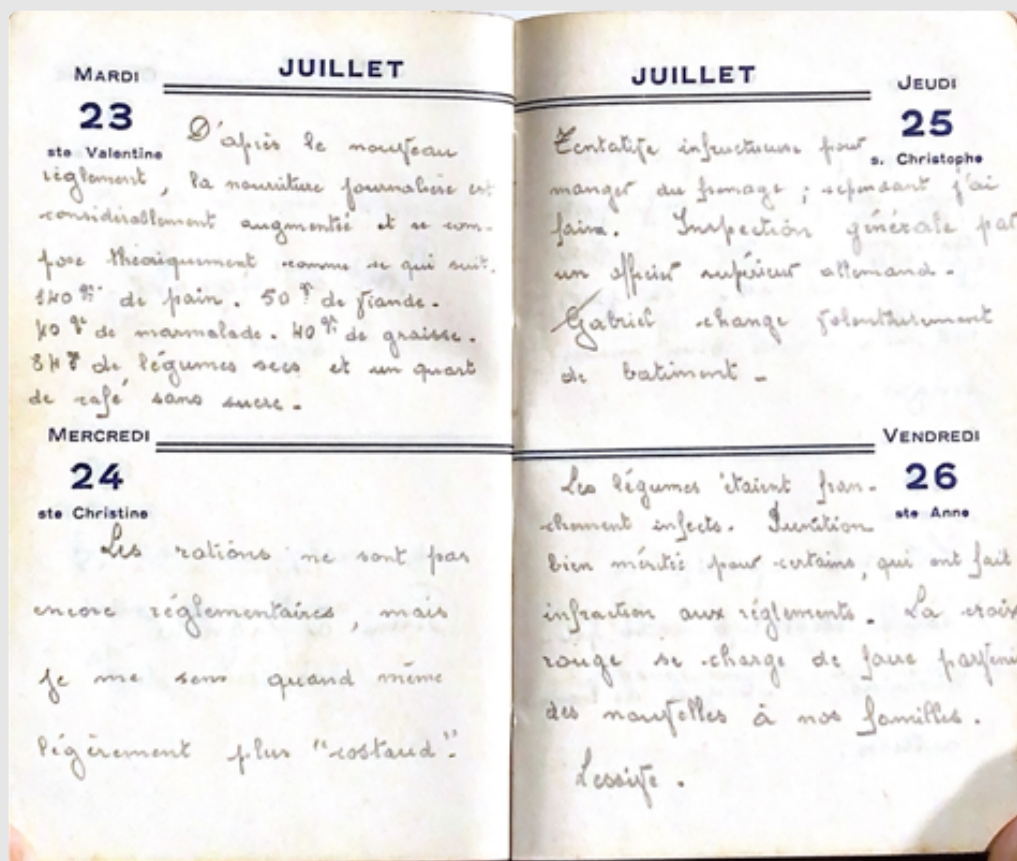 MARDI
JUILLET
23
ste Valentine
D'après le nouveau
règlement, la nourriture journalière est
considérablement augmentée et se com-
pose théoriquement comme ce qui suit.
gr de pain. 50 gr de viande.
gr de marmalade. 40 gr de graisse.
gr de légumes secs et un quart
de café sans sucre.
MERCREDI
24
ste Christine
Les rations ne sont pas
encore réglementaires, mais
je me sens quand même
légèrement plus "costaud".
JUILLET
JEUDI
25
s. Christophe
Tentative infructueuse pour
manger du fromage ; cependant j'ai
faim. Inspection générale par
un officier supérieur allemand.
Gabriel change volontairement
de batiment.
VENDREDI
26
ste Anne
Les légumes étaient fran-
chement infects. Punition
bien méritée pour certains, qui ont fait
infraction aux réglements. La croix
rouge se charge de faire parvenir
des nouvelles à nos familles.
Lessive.